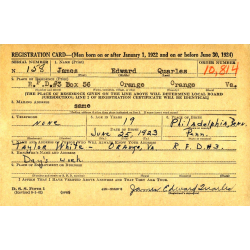 REGISTRATION CARD—(Men born on or after January 1, 1922 and on or before June 30, 1924)
SERIAL NUMBER 1. NAME (Print) ORDER NUMBER
N 158 James Edward Quarles 10,814
2. PLACE OF RESIDENCE (Print)
R.F.D. #3 Box 56 Orange Orange Va.
(THE PLACE OF RESIDENCE GIVEN ON THE LINE ABOVE WILL DETERMINE LOCAL BOARD
JURISDICTION; LINE 2 OF REGISTRATION CERTIFICATE WILL BE IDENTICAL)
3. MAILING ADDRESS
same
4. TELEPHONE 5. AGE IN YEARS 6. PLACE OF BIRTH
none 19 Philadelphia, Penn.
DATE OF BIRTH
June 25, 1923 Penn.
7. NAME AND ADDRESS OF PERSON WHO WILL ALWAYS KNOW YOUR ADDRESS
Taylor White - Orange Va R.F.D #3
8. EMPLOYER'S NAME AND ADDRESS
Day's work
9. PLACE OF EMPLOYMENT OR BUSINESS
I AFFIRM THAT I HAVE VERIFIED ABOVE ANSWERS AND THAT THEY ARE TRUE.
D. S. S. Form 1
James Edward Quarles